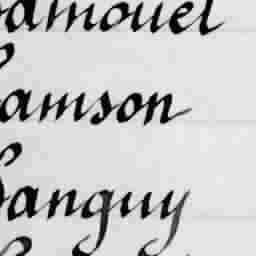 Samouel
Samson
Sanguy